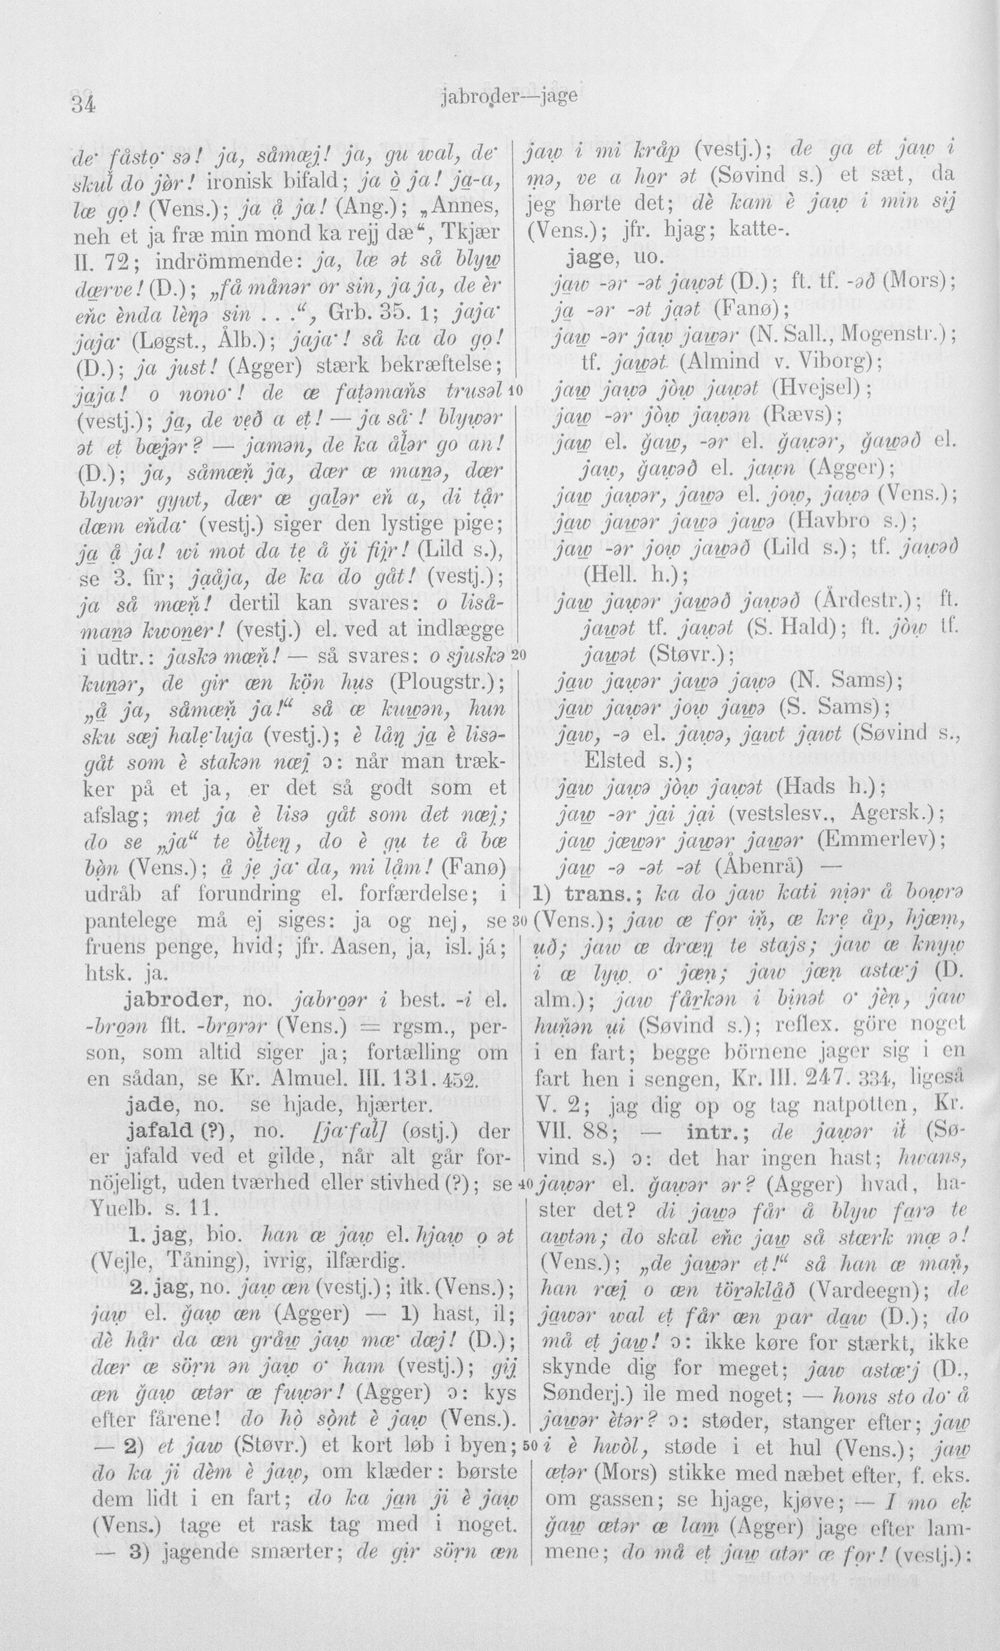 34
jabroder—jage
de· fåsto· sə! ja, såmæj! ja, gu wal, de·
skul do jør! ironisk bifald; ja ò ja! ja-a,
læ go! (Vens.); ja å ja! (Ang.); „Annes,
neh et ja fræ min mond ka rejj dæ“, Tkjær
II. 72; indrömmende: ja, læ ət så blyw
dærve! (D.); „få månər or sin, ja ja, de èr
eñc ènda lèŋə sin . . .“, Grb. 35. 1; jaja·
jaja· (Løgst., Ålb.); jaja·! så ka do go!
(D.); ja just! (Agger) stærk bekræftelse;
jaja! o nono·! de æ fatəmañs trusəl 10
(vestj.); ja, de veð a et! — ja så·! blywər
ət et bæjər? — jamən, de ka ålər go an!
(D.); ja, såmæñ ja, dær æ manə, dær
blywər gywt, dær æ galər eñ a, di tår
dæm eñda· (vestj.) siger den lystige pige;
ja å ja! wi mot da te å ği fijr! (Lild s.),
se 3. fir; jaåja, de ka do gåt! (vestj.);
ja så mæñ! dertil kan svares: o liså-
manə kwoner! (vestj.) el. ved at indlægge
i udtr.: jaskə mæñ! — så svares: o sjuskə 20
kunər, de gir æn kön hus (Plougstr.);
„å ja, såmæñ ja!“ så æ kuwən, hun
sku sæj hale·luja (vestj.); è låŋ ja è lisə-
gåt som è stakən næj ɔ: når man træk-
ker på et ja, er det så godt som et
afslag; met ja è lisə gåt som det næj;
do se „ja“ te òlteŋ, do è gu te å bæ
bòn (Vens.); å je ja· da, mi låm! (Fanø)
udråb af forundring el. forfærdelse; i
pantelege må ej siges: ja og nej, se 30
fruens penge, hvid; jfr. Aasen, ja, isl. já;
htsk. ja.
jabroder, no. jabroər i best. -i el.
-broən flt. -brørər (Vens.) = rgsm., per-
son, som altid siger ja; fortælling om
en sådan, se Kr. Almuel. III. 131. 452.
jade, no. se hjade, hjærter.
jafald (?), no. [ja·fal] (østj.) der
er jafald ved et gilde, når alt går for-
nöjeligt, uden tværhed eller stivhed (?); se 40
Yuelb. s. 11.
1. jag, bio. han æ jaw el. hjaw o ət
(Vejle, Tåning), ivrig, ilfærdig.
2. jag, no. jaw æn (vestj.); itk. (Vens.);
jaw el. ğaw æn (Agger) — 1) hast, il;
dè hår da æn gråw jaw mæ· dæj! (D.);
dær æ sörn ən jaw o· ham (vestj.); gij
æn ğaw ætər æ fuwər! (Agger) ɔ: kys
efter fårene! do hò sònt è jaw (Vens.).
— 2) et jaw (Støvr.) et kort løb i byen; 50
do ka ji dèm è jaw, om klæder: børste
dem lidt i en fart; do ka jan ji è jaw
(Vens.) tage et rask tag med i noget.
— 3) jagende smærter; de gir sörn æn
jaw i mi kråp (vestj.); de ga et jaw i
mə, ve a hor ət (Søvind s.) et sæt, da
jeg hørte det; dè kam è jaw i min sij
(Vens.); jfr. hjag; katte-.
jage, uo.
jaw -ər -ət jawət (D.); ft. tf. -əð (Mors);
ja -ər -ət jaət (Fanø);
jaw -ər jaw jawər (N. Sall., Mogenstr.);
tf. jawət (Almind v. Viborg);
jaw jawə jòw jawət (Hvejsel);
jaw -ər jòw jawən (Rævs);
jaw el. ğaw, -ər el. ğawər, ğawəð el.
jaw, ğawəð el. jawn (Agger);
jaw jawər, jawə el. jow, jawə (Vens.);
jaw jawər jawə jawə (Havbro s.);
jaw -ər jow jawəð (Lild s.); tf. jawəð
(Hell. h.);
jaw jawər jawəð jawəð (Årdestr.); ft.
jawət tf. jawət (S. Hald); ft. jòw tf.
jawət (Støvr.);
jaw jawər jawə jawə (N. Sams);
jaw jawər jow jawə (S. Sams);
jaw, -ə el. jawə, jawt jawt (Søvind s.,
Elsted s.);
jaw jawə jòw jawət (Hads h.);
jaw -ər jai jai (vestslesv., Agersk.);
jaw jæwər jawər jawər (Emmerlev);
jaw -ə -ət -ət (Åbenrå) —
1) trans.; ka do jaw kati niər å bowrə
(Vens.); jaw æ for iñ, æ kre åp, hjæm,
uð; jaw æ dræŋ te stajs; jaw æ knyw
i æ lyw o· jæn; jaw jæn astæ·j (D.
alm.); jaw fårkən i binət o· jèn, jaw
huñən ui (Søvind s.); reflex. göre noget
i en fart; begge börnene jager sig i en
fart hen i sengen, Kr. III. 247. 334, ligeså
V. 2; jag dig op og tag natpotten, Kr.
VII. 88; — intr.; de jawər it (Sø-
vind s.) ɔ: det har ingen hast; hwans,
jawər el. ğawər ər? (Agger) hvad, ha-
ster det? di jawə får å blyw farə te
awtən; do skal eñc jaw så stærk mæ ə!
(Vens.); „de jawər et!“ så han æ mañ,
han ræj o æn törəklåð (Vardeegn); de
jawər wal et får æn par daw (D.); do
må et jaw! ɔ: ikke køre for stærkt, ikke
skynde dig for meget; jaw astæ·j (D.,
Sønderj.) ile med noget; — hons sto do· å
jawər ètər? ɔ: støder, stanger efter; jaw
i è hwòl, støde i et hul (Vens.); jaw
ætər (Mors) stikke med næbet efter, f. eks.
om gassen; se hjage, kjøve; — I mo ek
ğaw ætər æ lam (Agger) jage efter lam-
mene; do må et jaw atər æ for! (vestj.);